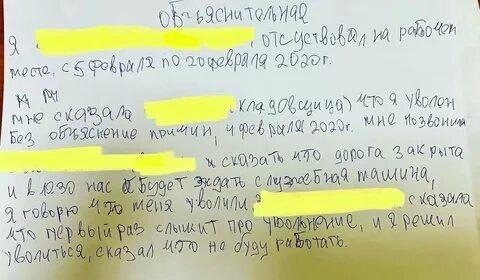 объяснительная
Я отсуствовал на рабочем
месте, с 5 февраля по 20 февраля 2020г.
мне сказала кладовщица) что я уволен
Без объяснение причин, 4 февраля 2020г. мне позвонила
и сказать что дорога закрыта
и в 1030 нас будет ждать служебная машина,
Я говорю что меня уволили сказала
что первый раз слышит про увольнение, и я решил
уволиться, сказал что не буду работать.